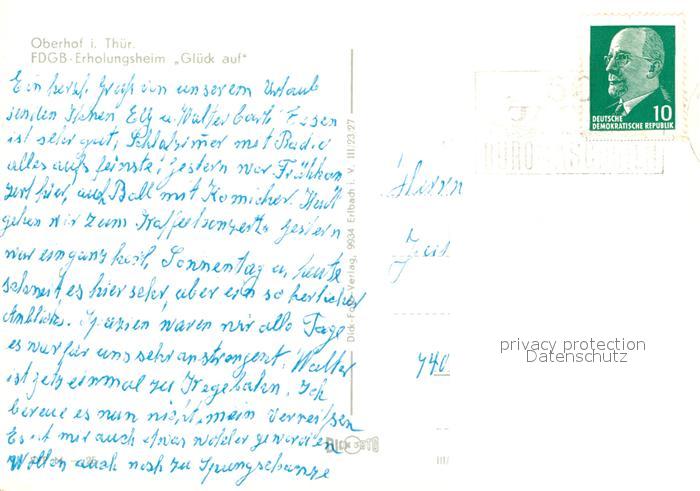 Oberhof i. Thür.
FDGB-Erholungsheim „Glück auf"
Ein herzl. Gruß von unserem Urlaub
senden Ihnen Elly u. Walter Essen
ist sehr gut, Schlafzimmer mit Radio
alles aufs feinste, gestern war
hier, auch Ball mit Komicher. Heut
gehen wir zum gestern
war ein ganz Sonnentag u. heute
schneit es hier sehr, aber ein so herlicher
Anblick. Spazien waren wir alle Tage
es war für uns sehr anstrengent. Walter
ist jetz einmal zu Ich
bereue es nun nicht, mein verreißen
Es mir auch etwas wohler geworden
Wollen auch noch zu Sprungschanze
Dick-Foto-Verlag, 9934 Erlbach i. V. III/23/27
DICK FOTO
III/
DEUTSCHE
DEMOKRATISCHE REPUBLIK
10
Herrn
740
privacy protection
Datenschutz